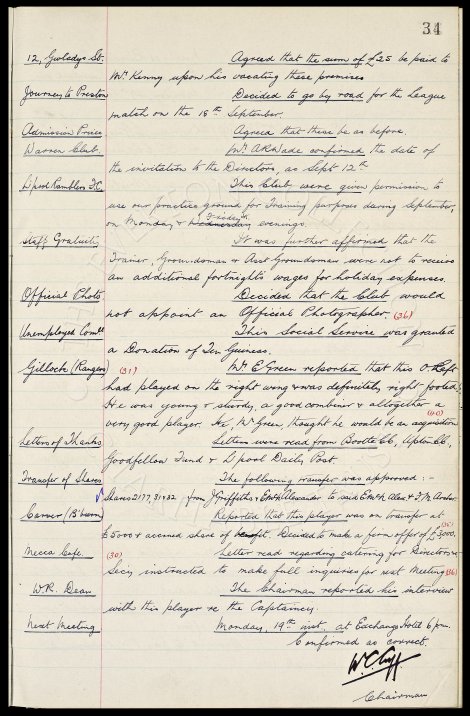 34
12, Gwladys St. Agreed that the sum of £25 be paid to
Mr. Kenny upon his vacating these premises
Journey to Preston Decided to go by road for the League
match on the 15th September.
Admission Prices Agreed that these be as before
Warren Club. Mr ARWade confirmed the date of
the invitation to the Directors, as Sept 12th
L'pool Ramblers F.C. This Club were given permission to
use our practice ground for Training purposes during September,
on Monday & Wednesday Friday evenings.
Staff Gratuity It was further affirmed that the
Trainer, Groundsman & Asst Groundsman were not to receive
an additional fortnights wages for holiday expenses.
Official Photo Decided that the Club would
not appoint an Official Photographer. (36)
Unemployed Comtt This Social Service was granted
a Donation of Ten Guineas.
Gillock (Rangers) (31) Mr E Green reported that this O Left
had played on the right wing & was definitely right footed.
He was young & sturdy, a good combiner & altogether a
very good player. He, Mr Green, thought he would be an acquisition (40)
Letters of Thanks Letters were read from Bootle CC,
Goodfellow Fund & L'pool Daily Post.
Transfer of Shares The following transfer was approved :-
Shares 2177, 31 & 32 from J Griffiths & EmH Alexander to said EmH. Alex & F. M.
Carver (B'burn) Reported that this player was on transfer at
£5000 & accrued share of benefit. Decided to make a firm offer of £3000. (35)
Mecca Cafe. (30) Letter read regarding catering for Directors,
Secy instructed to make full inquiries for next Meeting (36)
W.R. Dean The Chairman reported his interview
with this player re the Captaincy.
Next Meeting Monday, 19th inst. at Exchange Hotel 6 p.m.
Confirmed as correct.
W.C. Cuff
Chairman